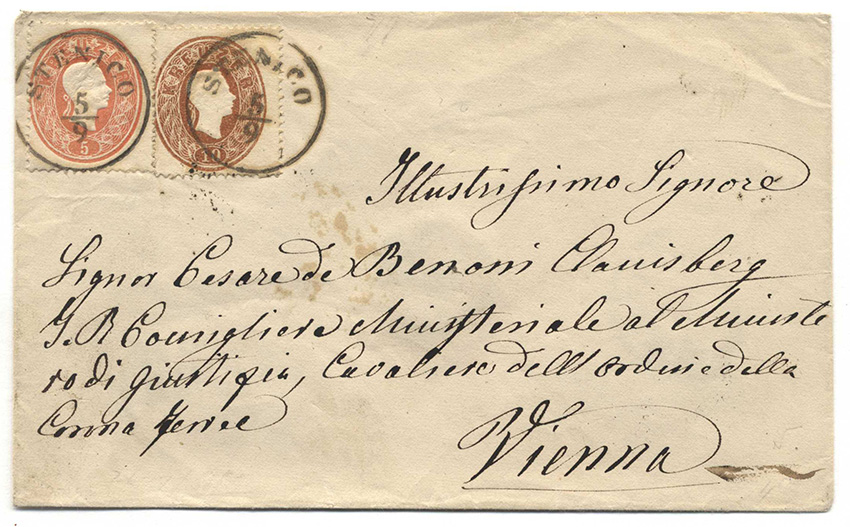 STENICO
5
9
5
KREUZER
STENICO
5
9
10
Illustrissimo Signore
Signor Cesare de Benoni Clanisberg
I. R Consigliere Ministeriale al Ministe
ro di Giustizia, Cavaliere dell'ordine della
Corona ferrea
Vienna